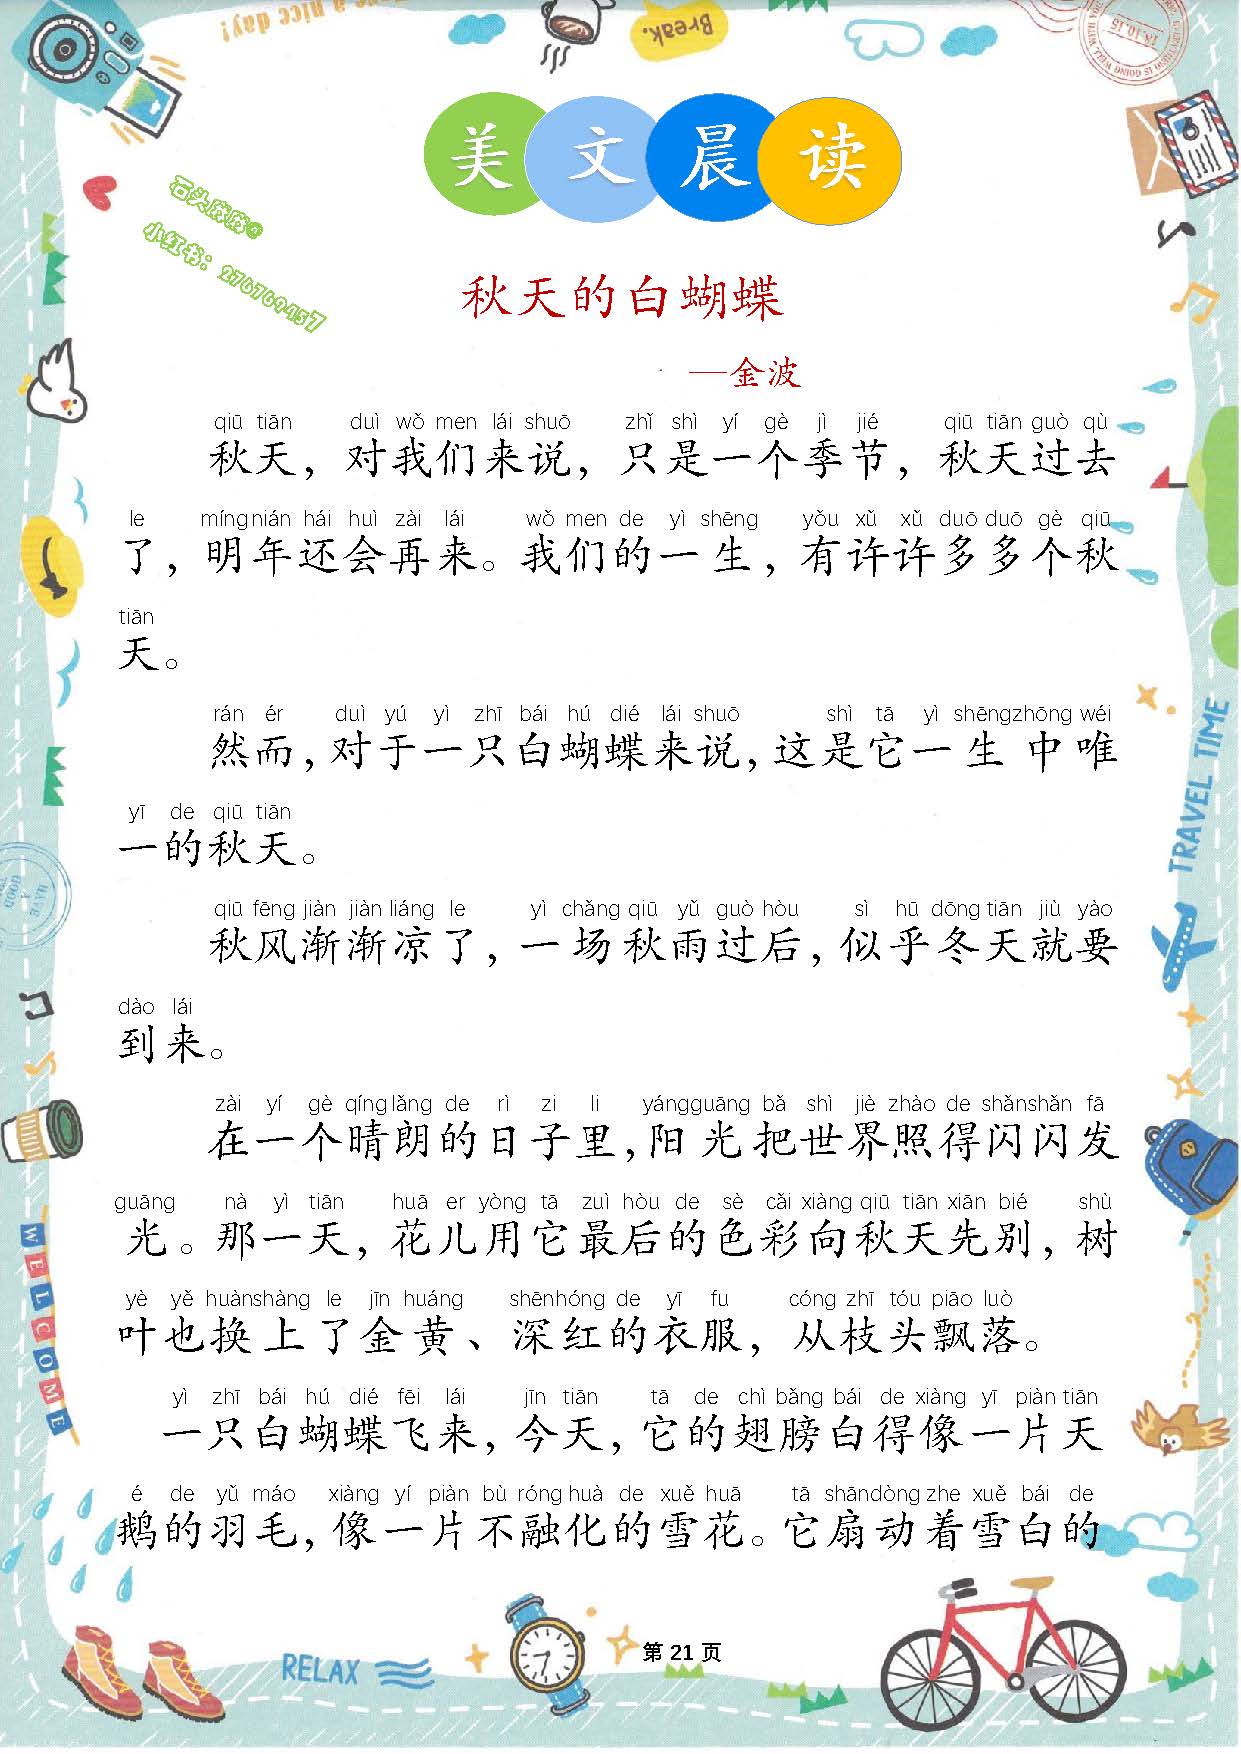 Have a nice day!
Break.
美文晨读
石头成成@
小红书：276769457
秋天的白蝴蝶
—金波
qiū tiān duì wǒ men lái shuō zhǐ shì yí gè jì jié qiū tiān guò qù
秋天，对我们来说，只是一个季节，秋天过去
le míng nián hái huì zài lái wǒ men de yì shēng yǒu xǔ xǔ duō duō gè qiū
了，明年还会再来。我们的一生，有许许多多个秋
tiān
天。
rán ér duì yú yì zhī bái hú dié lái shuō shì tā yì shēng zhōng wéi
然而，对于一只白蝴蝶来说，这是它一生中唯
yī de qiū tiān
一的秋天。
qiū fēng jiàn jiàn liáng le yì chǎng qiū yǔ guò hòu sì hū dōng tiān jiù yào
秋风渐渐凉了，一场秋雨过后，似乎冬天就要
dào lái
到来。
zài yí gè qíng lǎng de rì zi li yáng guāng bǎ shì jiè zhào de shǎn shǎn fā
在一个晴朗的日子里，阳光把世界照得闪闪发
guāng nà yì tiān huā er yòng tā zuì hòu de sè cǎi xiàng qiū tiān xiān bié shù
光。那一天，花儿用它最后的色彩向秋天先别，树
yè yě huàn shàng le jīn huáng shēn hóng de yī fu cóng zhī tóu piāo luò
叶也换上了金黄、深红的衣服，从枝头飘落。
yì zhī bái hú dié fēi lái jīn tiān tā de chì bǎng bái de xiàng yī piàn tiān
一只白蝴蝶飞来，今天，它的翅膀白得像一片天
é de yǔ máo xiàng yí piàn bù róng huà de xuě huā tā shān dòng zhe xuě bái de
鹅的羽毛，像一片不融化的雪花。它扇动着雪白的
TRAVEL TIME
WELCOME
RELAX
第 21 页